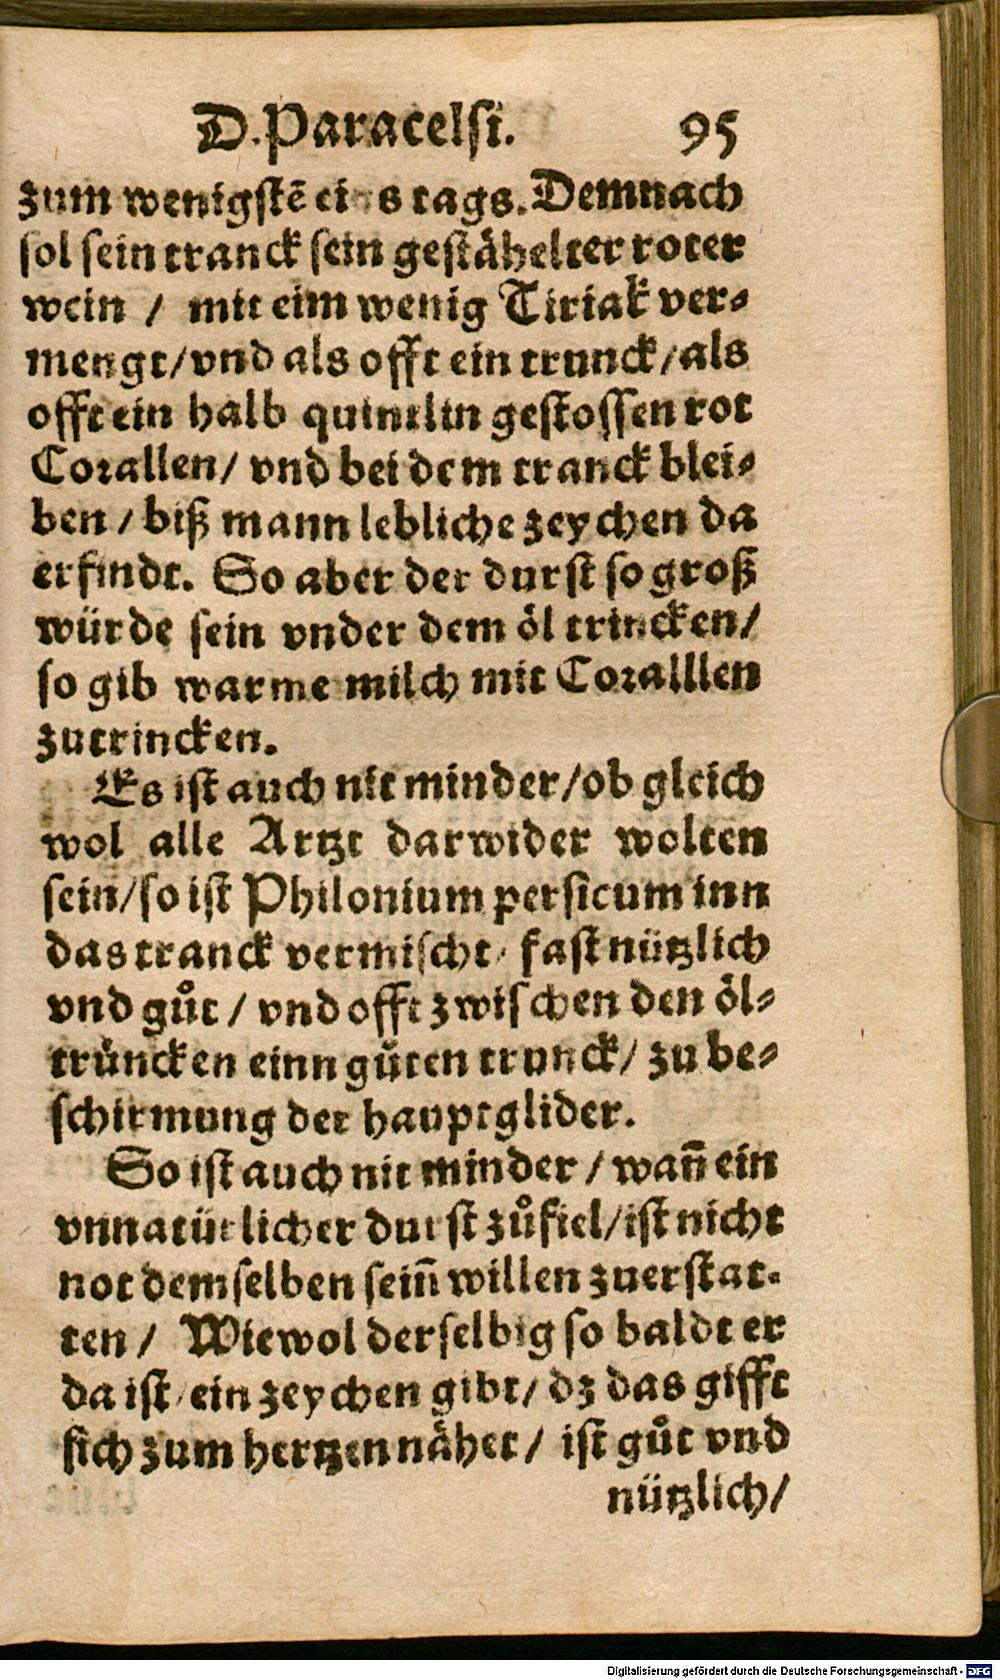 D. Paracelsi. 95
zum wenigstē eins tags. Demnach
sol sein tranck sein gestähelter roter
wein / mit eim wenig Tiriak ver-
mengt/vnd als offt ein trunck/als
offt ein halb quintlin gestossen rot
Corallen/ vnd bei dem tranck blei-
ben / biß mann lebliche zeychen da
erfindt. So aber der durst so groß
würde sein vnder dem öl trincken/
so gib warme milch mit Coralllen
zutrincken.
Es ist auch nit minder/ob gleich
wol alle Artzt darwider wolten
sein/so ist Philonium persicum inn
das tranck vermischt/ fast nützlich
vnd gůt / vnd offt zwischen den öl-
trüncken einn gůten trunck/ zu be-
schirmung der hauptglider.
So ist auch nit minder / wañ ein
vnnatürlicher durst zůfiel/ist nicht
not demselben seiñ willen zuerstat-
ten / Wiewol derselbig so baldt er
da ist/ein zeychen gibt/ dz das gifft
sich zum hertzen nähet / ist gůt vnd
nützlich/
Digitalisierung gefördert durch die Deutsche Forschungsgemeinschaft - DFG